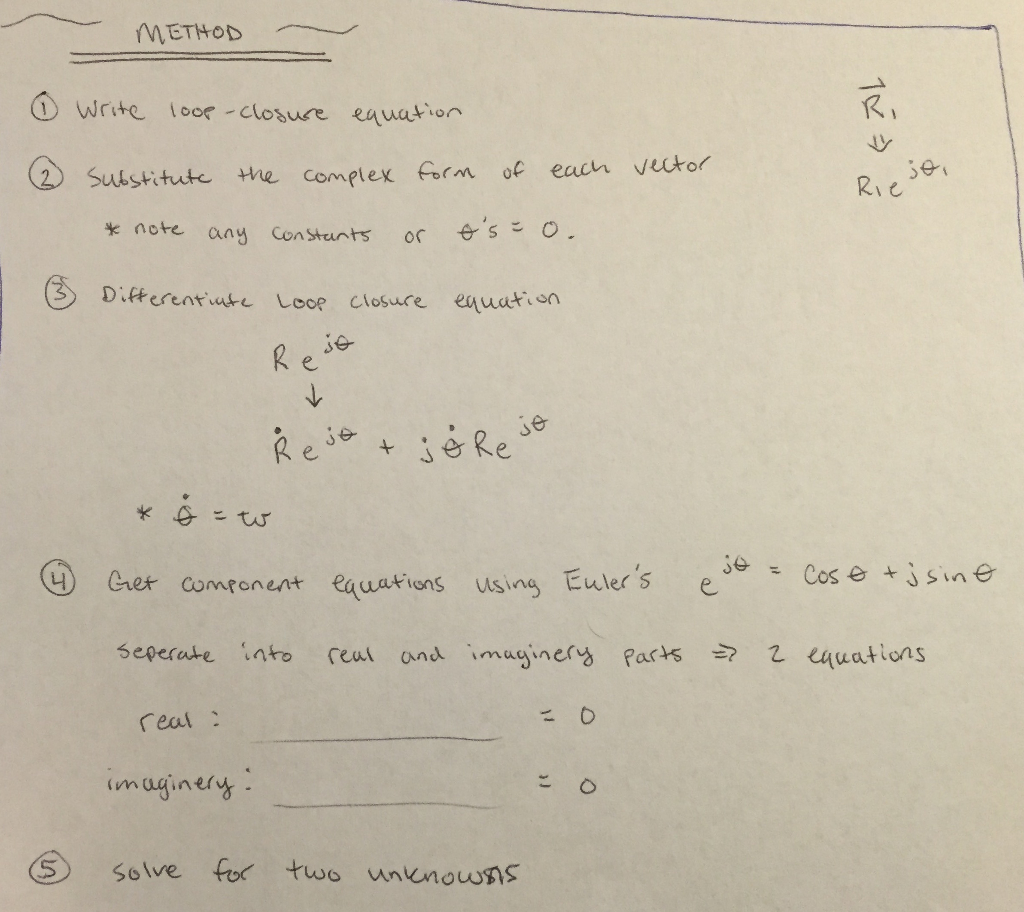 METHOD
① Write loop-closure equation
R⃗₁
⇓
R₁e^jθ₁
② Substitute the complex form of each vector
* note any constants or θ's = 0.
③ Differentiate Loop closure equation
Re^jθ
↓
Ṙe^jθ + jθ̇Re^jθ
* θ̇ = w
④ Get component equations using Euler's e^jθ = cosθ + jsinθ
seperate into real and imaginery parts ⇒ 2 equations
real: ________ = 0
imaginery: ________ = 0
⑤ solve for two unknowns